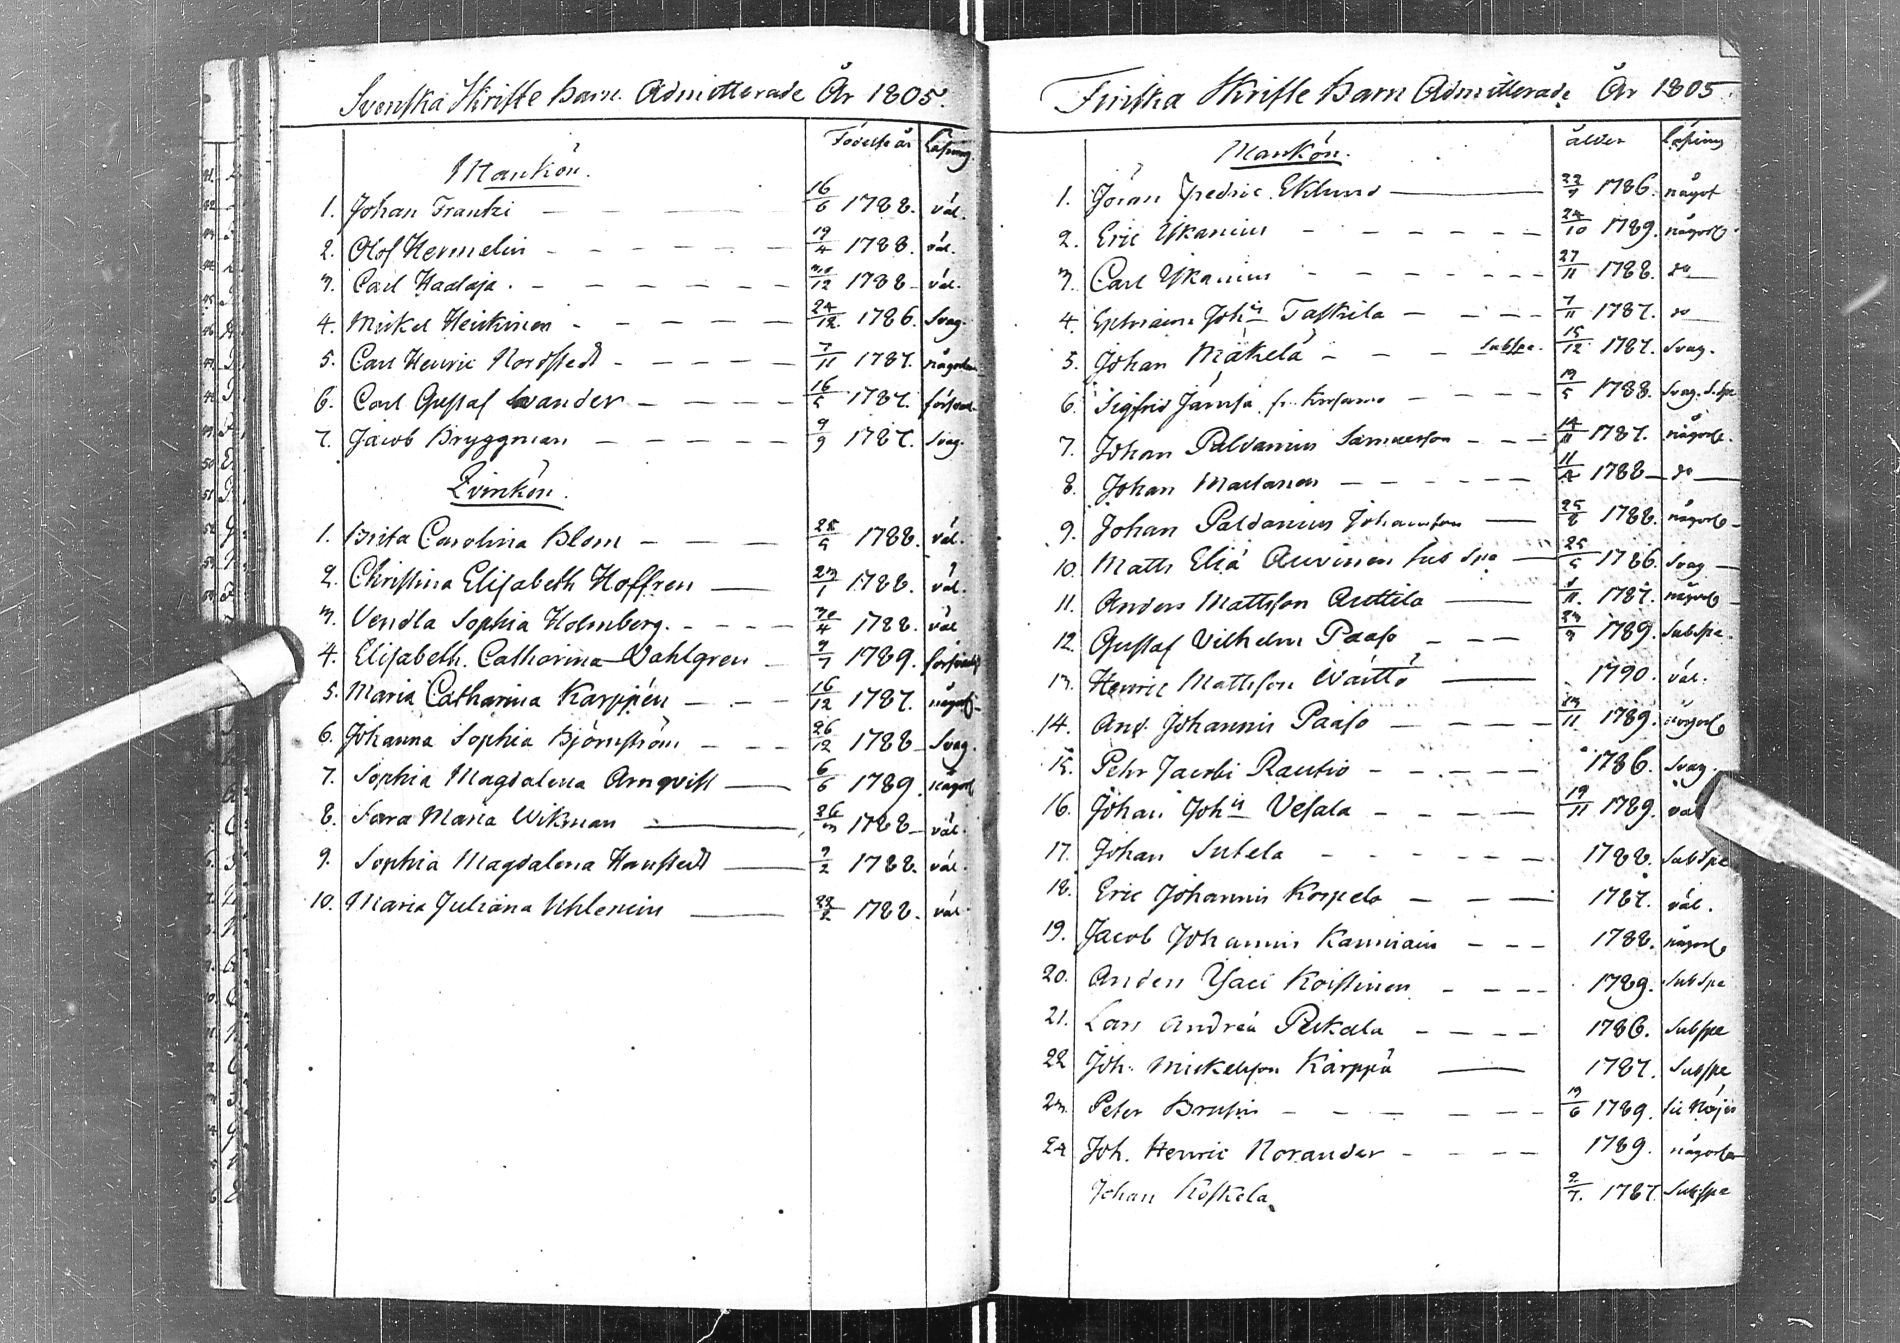 Svenska Skrifte Barn Admitterade År 1805.
Födelseår Läsning
Mankön.
1. Johan Frantzi 16/6 1788. väl.
2. Olof Hermelin 19/4 1788. väl.
3. Carl Haataja 30/12 1788 väl.
4. Mickel Heickinen 24/12 1786. Svag.
5. Carl Henric Nordstedt 7/11 1787. någorlun
6. Carl Gustaf Wander 16/5 1787. försvarl.
7. Jacob Bryggman 9/9 1787. Svag.
Qvinkön.
1. Brita Carolina Blom 25/5 1788. väl.
2. Christina Elisabeth Hoffren 23/1 1788. väl.
3. Vendla Sophia Holmberg. 30/4 1788. väl
4. Elisabeth Catharina Wahlgren 9/7 1789. försvarl
5. Maria Catharina Karppén 16/12 1787. någorl
6. Johanna Sophia Björnström 26/12 1788 Svag.
7. Sophia Magdalena Arnqvist 6/6 1789. någorl
8. Sara Maria Wikman 26/3 1788 väl.
9. Sophia Magdalena Hanstedt 9/2 1788. väl.
10. Maria Juliana Uhlenius 22/2 1788. väl
Finska Skrifte Barn Admitterade År 1805.
ålder Läsning
Mankön.
1. Jöran Fredric Eklund 22/7 1786. något
2. Eric Ukanius 24/10 1789. någorl.
3. Carl Ukanius 27/11 1788. do
4. Ephraim Johs Taskila 7/11 1787. do
5. Johan Mäkelä subspe. 15/12 1787. Svag.
6. Sigfrid Jämsä fr. Kusamo 19/5 1788. Svag. S. spe
7. Johan Paldanius Samuelson 14/11 1787. någorl.
8. Johan Martanen 11/2 1788 do
9. Johan Paldanius Johansson 25/8 1788. någorl
10. Matts Eliæ Auvinen sub spe 25/5 1786. Svag
11. Anders Mattsson Anttila /11. 1787. någorl
12. Gustaf Vilhelm Paaso 23/9 1789. Subspe.
13. Henric Mattsson Wäittö 1790. väl.
14. And. Johannis Paaso /11 1789. någorl
15. Pehr Jacobi Rautio 1786. Svag.
16. Johan Johs Vesala 19/11 1789. väl
17. Johan Sutela 1788. Subspe
18. Eric Johannis Korpela 1787. väl.
19. Jacob Johannis Kanniain 1788. någorl
20. Anders Ysaci Koistinen 1789. Subspe
21. Lars Andreæ Pukala 1786. Subspe
22 Joh. Mickelsson Kärppä 1787. Subspe
23. Peter Brusin 19/6 1789. til Nöjes
24 Joh. Henric Norander 1789. någorlun
Johan Koskela 9/7. 1787. Subspe